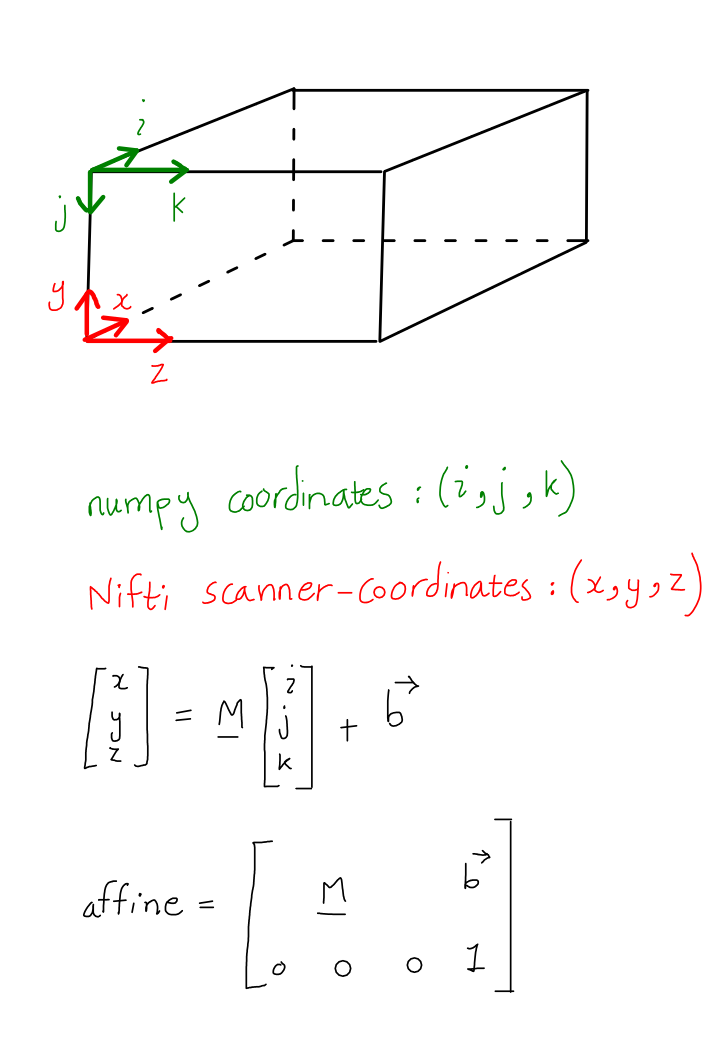 i
j
k
y
x
z
numpy coordinates : (i, j, k)
Nifti scanner-coordinates : (x, y, z)
[x y z] = M [i j k] + b→
affine = [M b→
0 0 0 1]